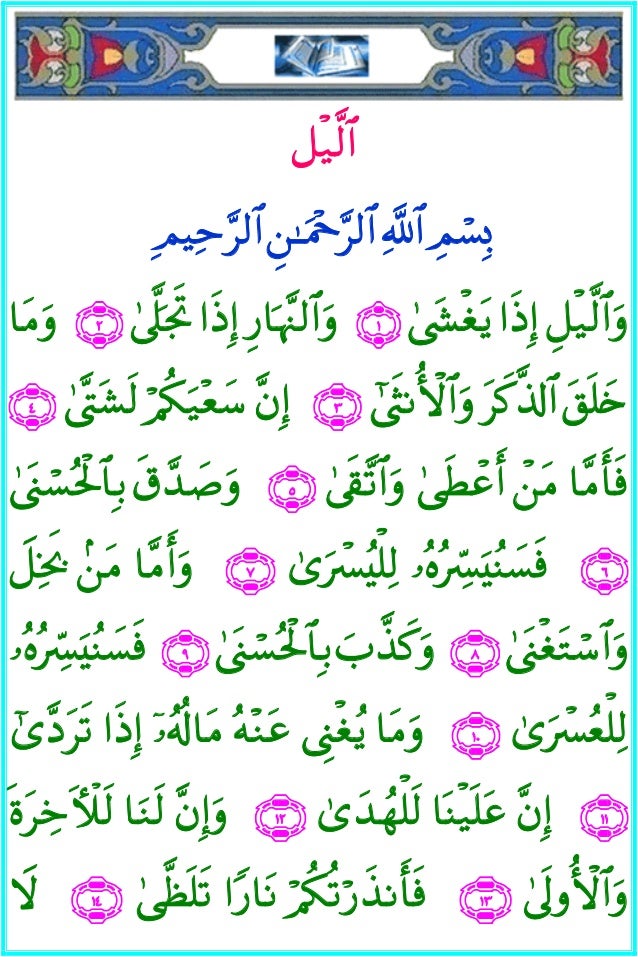 ٱلَّيْل
بِسْمِ ٱللَّهِ ٱلرَّحْمَـٰنِ ٱلرَّحِيمِ
وَٱلَّيْلِ إِذَا يَغْشَىٰ ١ وَٱلنَّهَارِ إِذَا تَجَلَّىٰ ٢ وَمَا
خَلَقَ ٱلذَّكَرَ وَٱلْأُنثَىٰٓ ٣ إِنَّ سَعْيَكُمْ لَشَتَّىٰ ٤
فَأَمَّا مَنْ أَعْطَىٰ وَٱتَّقَىٰ ٥ وَصَدَّقَ بِٱلْحُسْنَىٰ
٦ فَسَنُيَسِّرُهُۥ لِلْيُسْرَىٰ ٧ وَأَمَّا مَنۢ بَخِلَ
وَٱسْتَغْنَىٰ ٨ وَكَذَّبَ بِٱلْحُسْنَىٰ ٩ فَسَنُيَسِّرُهُۥ
لِلْعُسْرَىٰ ١٠ وَمَا يُغْنِى عَنْهُ مَالُهُۥٓ إِذَا تَرَدَّىٰٓ
١١ إِنَّ عَلَيْنَا لَلْهُدَىٰ ١٢ وَإِنَّ لَنَا لَلْـَٔاخِرَةَ
وَٱلْأُولَىٰ ١٣ فَأَنذَرْتُكُمْ نَارًا تَلَظَّىٰ ١٤ لَا